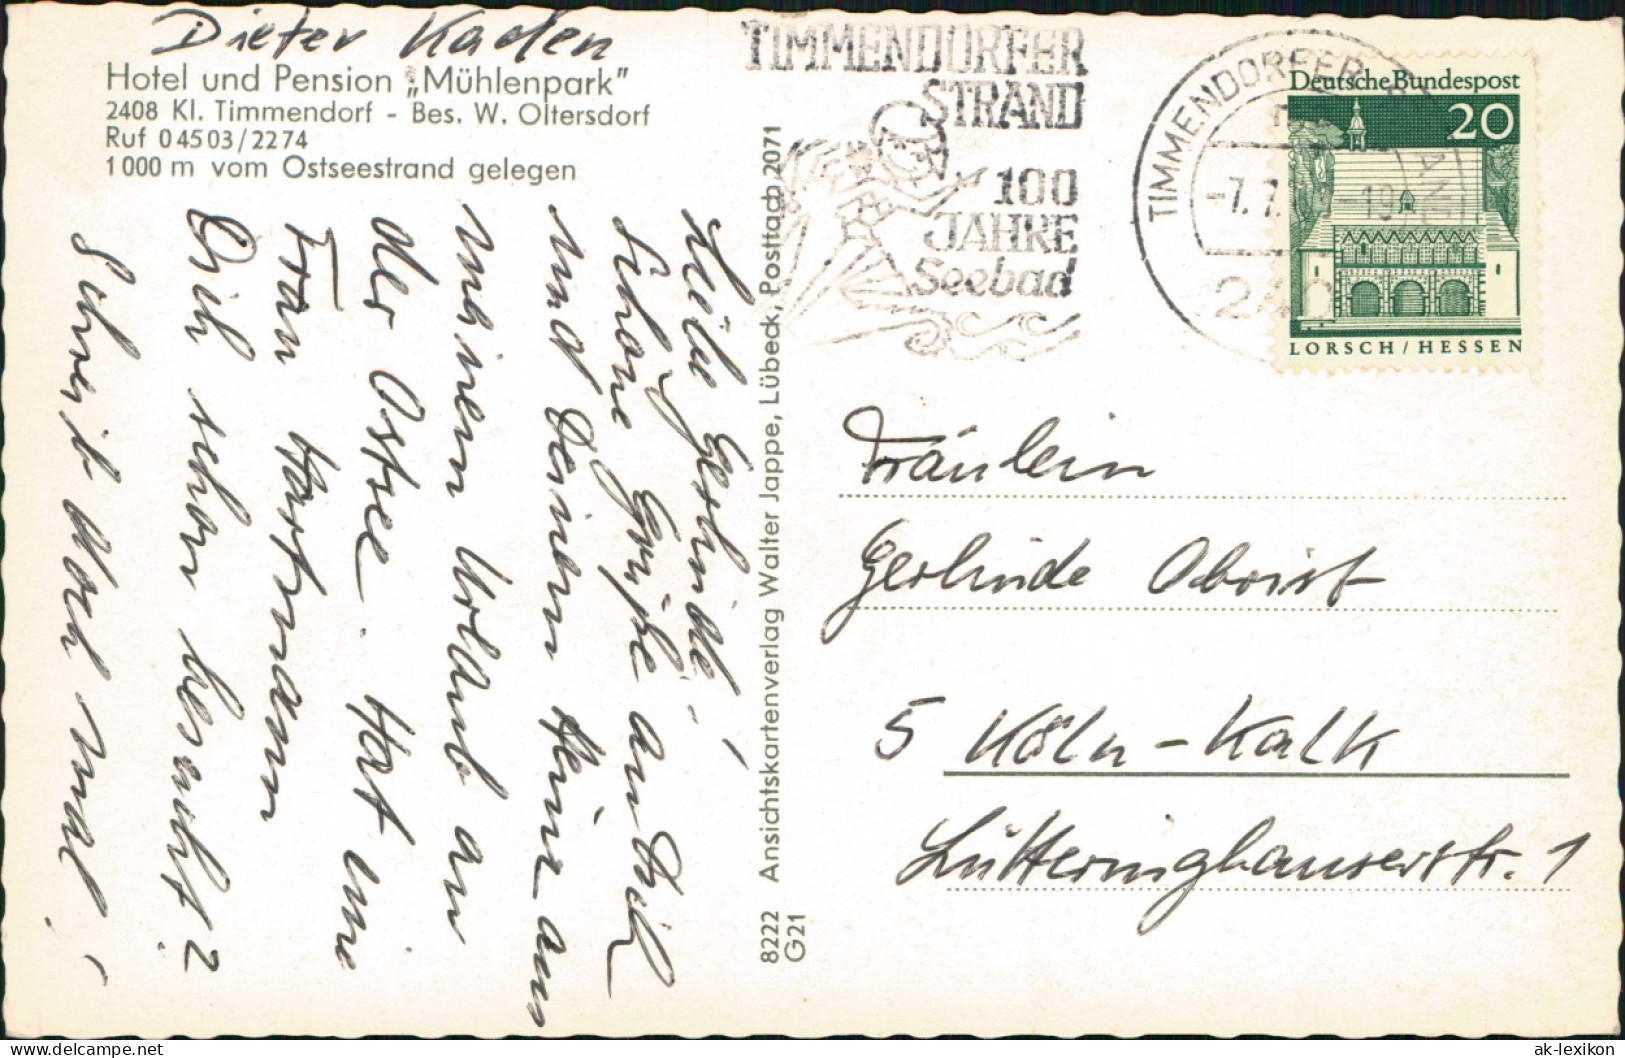 Dieter Kaden
Hotel und Pension „Mühlenpark"
2408 Kl. Timmendorf - Bes. W. Oltersdorf
Ruf 04503/2274
1000 m vom Ostseestrand gelegen
Gerlinde!
Schöne Grüße an Dich
und Deinen Heinz aus
meinem Urlaub an
der Ostsee. Hat
Frau Hartmann
Dich schon besucht?
Schreib doch mal!
8222 Ansichtskartenverlag Walter Jappe, Lübeck, Postfach 2071
G21
TIMMENDORFER
STRAND
100
JAHRE
Seebad
TIMMENDORFER STRAND
-7.7. -19
240
Deutsche Bundespost
20
LORSCH/HESSEN
Fräulein
Gerlinde Obrist
5 Köln-Kalk
Lütteringhauserstr. 1
delcampe.net
ak-lexikon